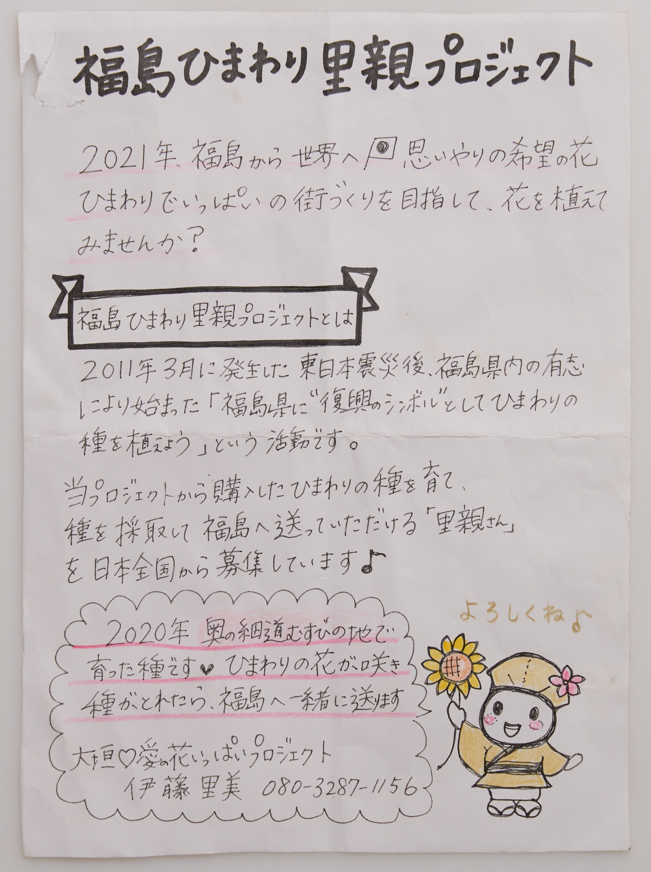 福島ひまわり里親プロジェクト
2021年、福島から世界へ 思いやりの希望の花
ひまわりでいっぱいの街づくりを目指して、花を植えて
みませんか?
福島ひまわり里親プロジェクトとは
2011年3月に発生した東日本震災後、福島県内の有志
により始まった「福島県に"復興のシンボル"としてひまわりの
種を植えよう」という活動です。
当プロジェクトから購入したひまわりの種を育て、
種を採取して福島へ送っていただける「里親さん」
を日本全国から募集しています♪
よろしくね♪
2020年 奥の細道むすびの地で
育った種です♥ ひまわりの花が咲き
種がとれたら、福島へ一緒に送ります
大垣♡愛の花いっぱいプロジェクト
伊藤里美 080-3287-1156